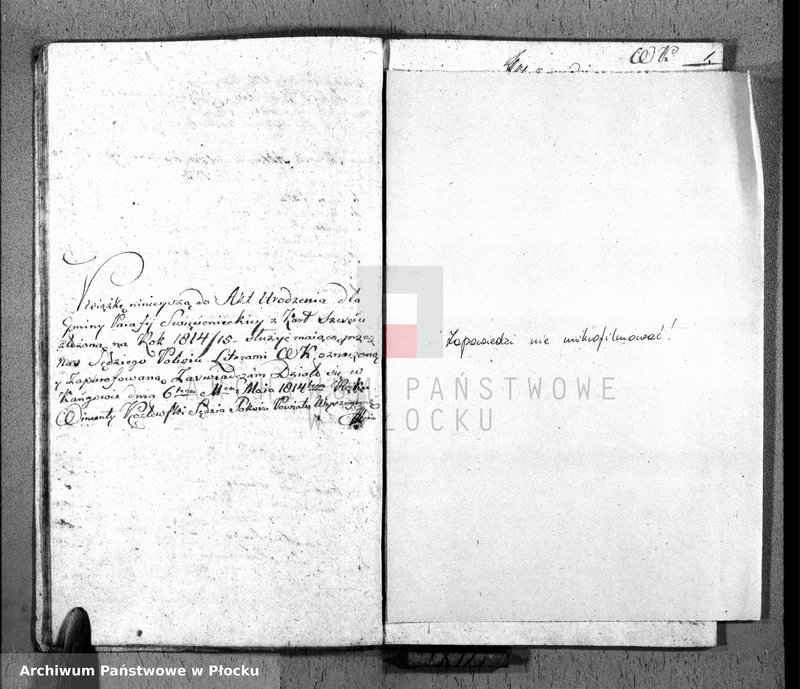 Książkę ninieyszą do Akt Urodzenia dla
Gminy Parafij z Kart Sześciu
złożoną na Rok 1814/15. służyć maiącą przez
Nas Sędziego Pokoiu Literami WK oznaczoną
y zaparafowaną Zaświadczam Działo się w
dnia 6tego Mca Maia 1814tego Roku
Wincenty Kozłowski Sędzia Pokoiu Powiatu
WK 1.
Zapowiedzi nie mikrofilmować!
ARCHIWUM PAŃSTWOWE
W PŁOCKU
Archiwum Państwowe w Płocku